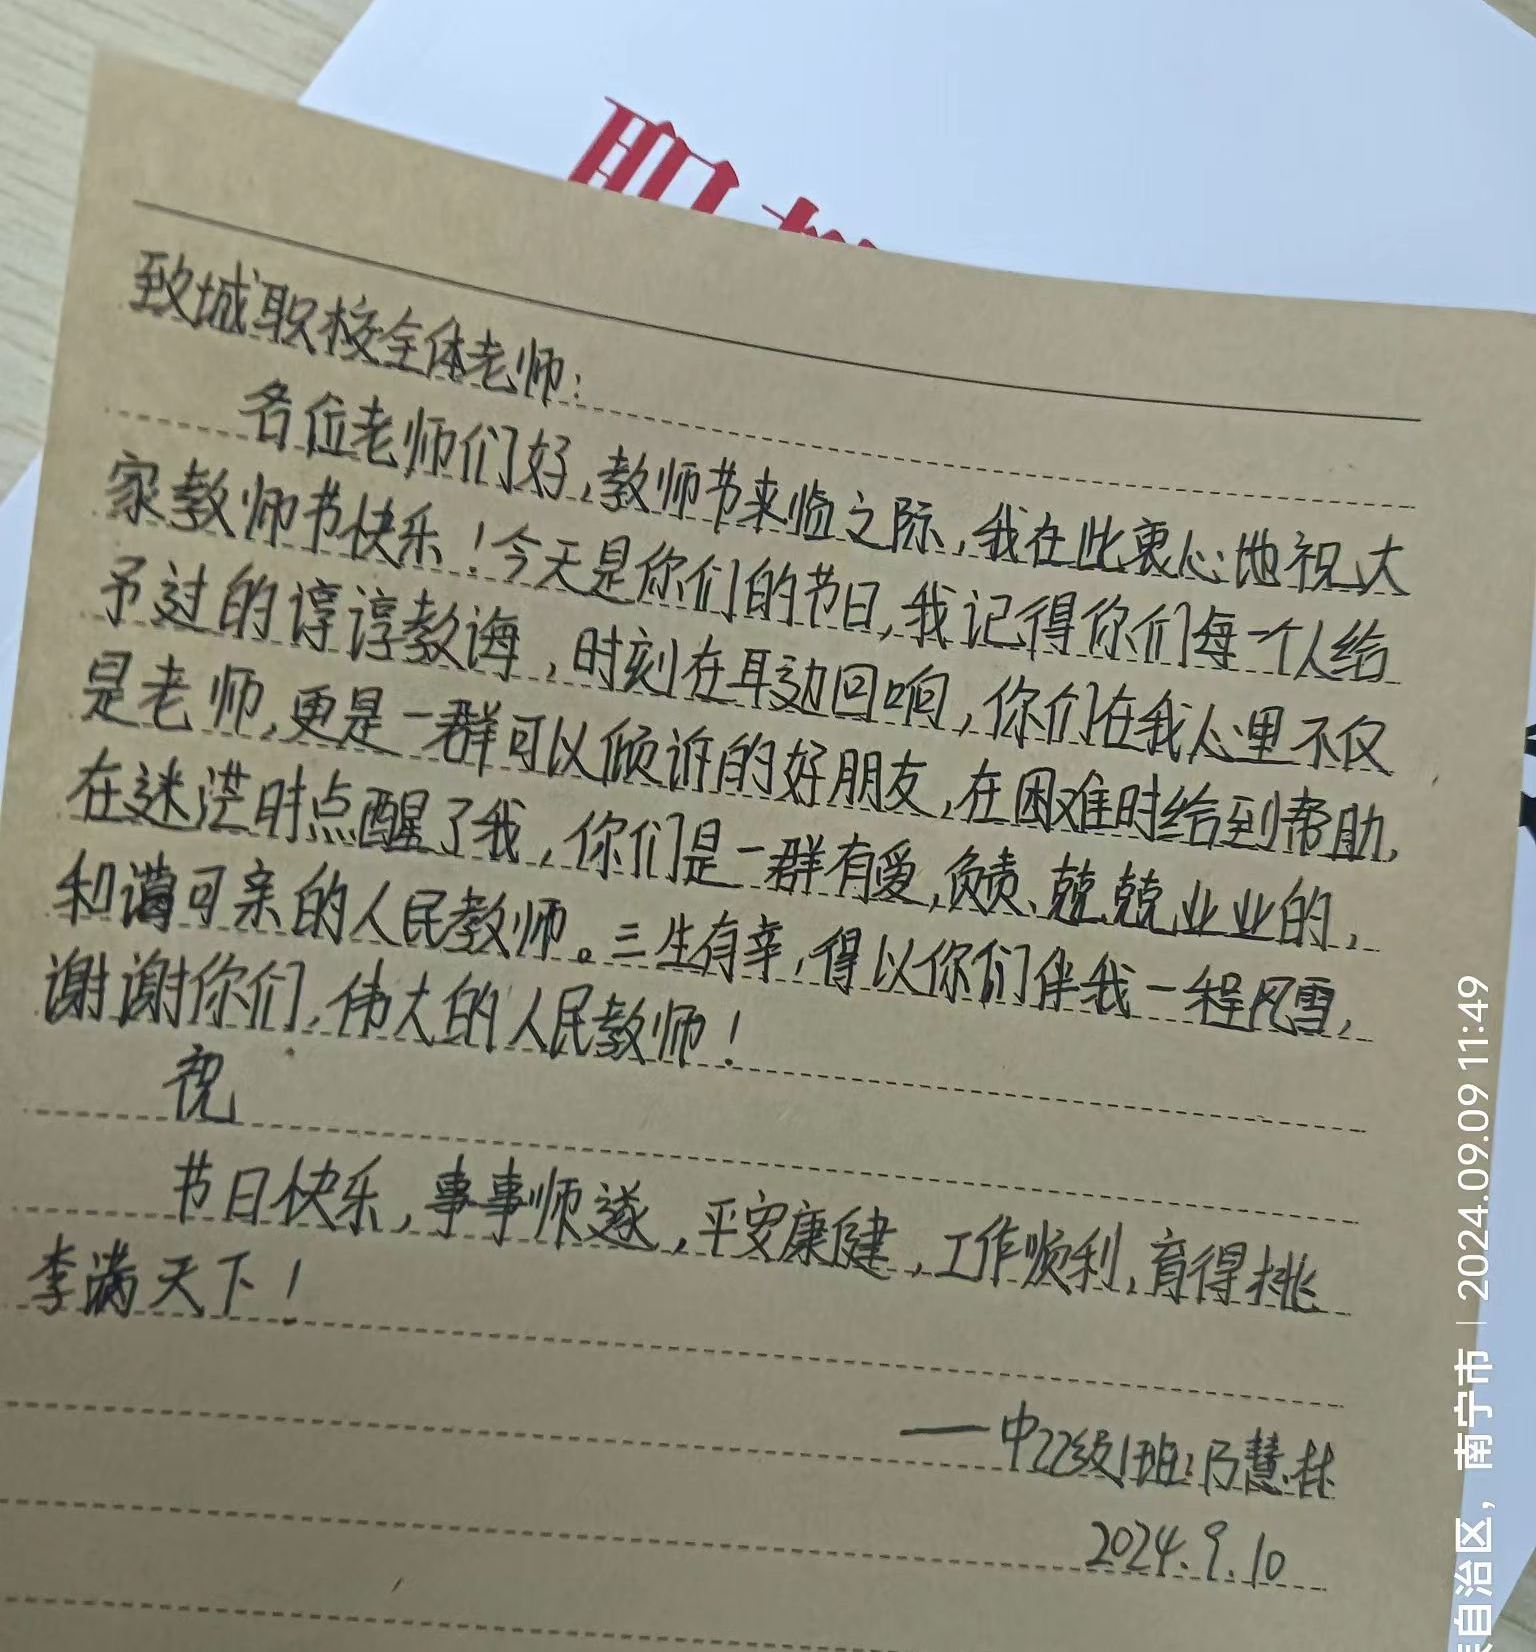 致城职校全体老师：
各位老师们好，教师节来临之际，我在此衷心地祝大
家教师节快乐！今天是你们的节日，我记得你们每一个人给
予过的谆谆教诲，时刻在耳边回响，你们在我心里不仅
是老师，更是一群可以倾诉的好朋友，在困难时给到帮助，
在迷茫时点醒了我，你们是一群有爱，负责、兢兢业业的，
和蔼可亲的人民教师。三生有幸，得以你们伴我一程风雪，
谢谢你们，伟大的人民教师！
祝
节日快乐，事事顺遂，平安康健，工作顺利，育得桃
李满天下！
——中22级1班：慧林
2024.9.10
自治区，南宁市 | 2024.09.09 11:49